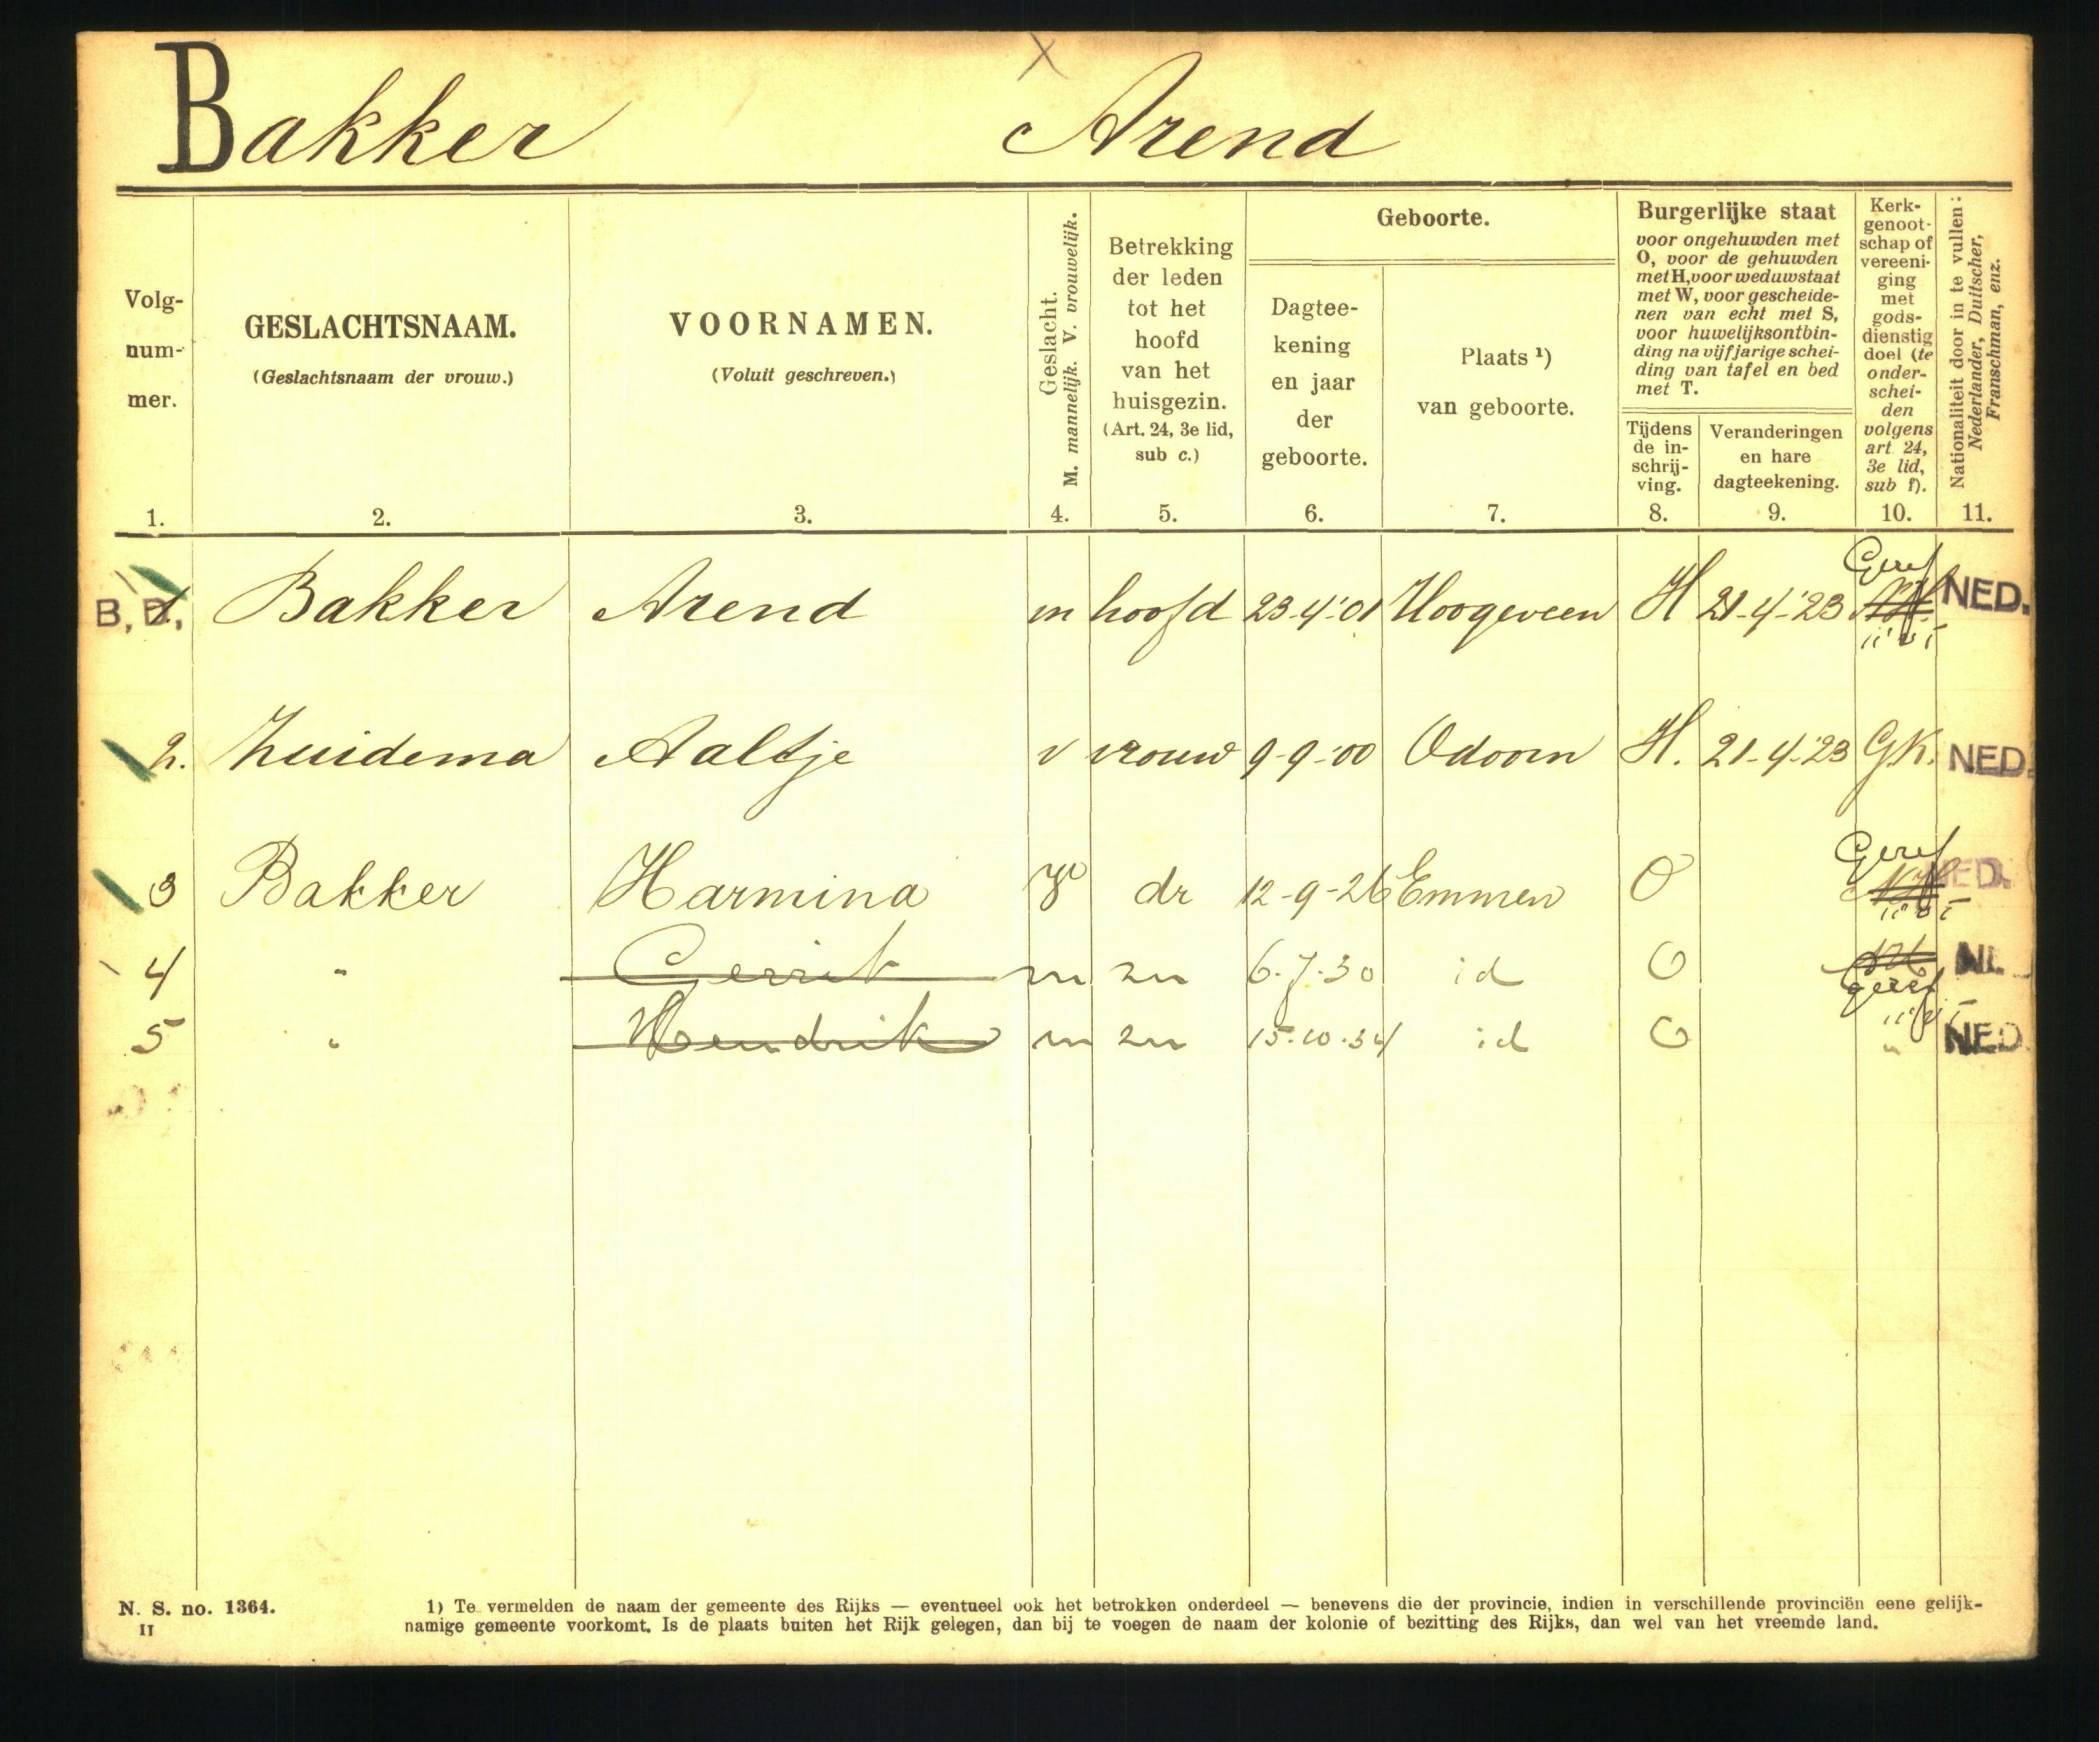 Bakker Arend
Volg-
num-
mer.
1.
GESLACHTSNAAM.
(Geslachtsnaam der vrouw.)
2.
VOORNAMEN.
(Voluit geschreven.)
3.
Geslacht.
M. mannelijk. V. vrouwelijk.
4.
Betrekking
der leden
tot het
hoofd
van het
huisgezin.
(Art. 24, 3e lid,
sub c.)
5.
Geboorte.
Dagtee-
kening
en jaar
der
geboorte.
6.
Plaats ¹)
van geboorte.
7.
Burgerlijke staat
voor ongehuwden met
O, voor de gehuwden
met H, voor weduwstaat
met W, voor gescheide-
nen van echt met S,
voor huwelijksontbin-
ding na vijfjarige schei-
ding van tafel en bed
met T.
Tijdens
de in-
schrij-
ving.
8.
Veranderingen
en hare
dagteekening.
9.
Kerk-
genoot-
schap of
vereeni-
ging
met
gods-
dienstig
doel (te
onder-
schei-
den
volgens
art. 24,
3e lid,
sub f).
10.
Nationaliteit door in te vullen:
Nederlander, Duitscher,
Franschman, enz.
11.
B, B, 1. Bakker Arend m hoofd 23-4-'01 Hoogeveen H 21-4-'23 Geref NH NED.
2. Zuidema Aaltje v vrouw 9-9-'00 Odoorn H. 21-4-'23 G.K. NED.
3 Bakker Harmina V dr 12-9-26 Emmen O Geref NH NED.
4 " Gerrit m zn 6.7.30 id O NH Geref
5 " Hendrik m zn 15.10.34 id O " NED.
N. S. no. 1364.
II
1) Te vermelden de naam der gemeente des Rijks — eventueel ook het betrokken onderdeel — benevens die der provincie, indien in verschillende provinciën eene gelijk-
namige gemeente voorkomt. Is de plaats buiten het Rijk gelegen, dan bij te voegen de naam der kolonie of bezitting des Rijks, dan wel van het vreemde land.